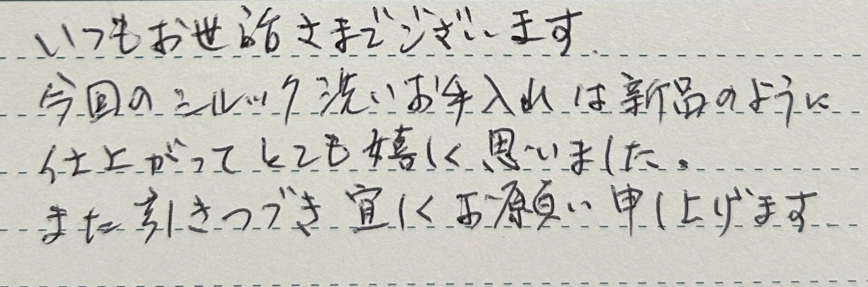 いつもお世話さまでございます.
今回のシルック洗いお手入れは新品のように
仕上がってとても嬉しく思いました。
また引きつづき宜しくお願い申し上げます